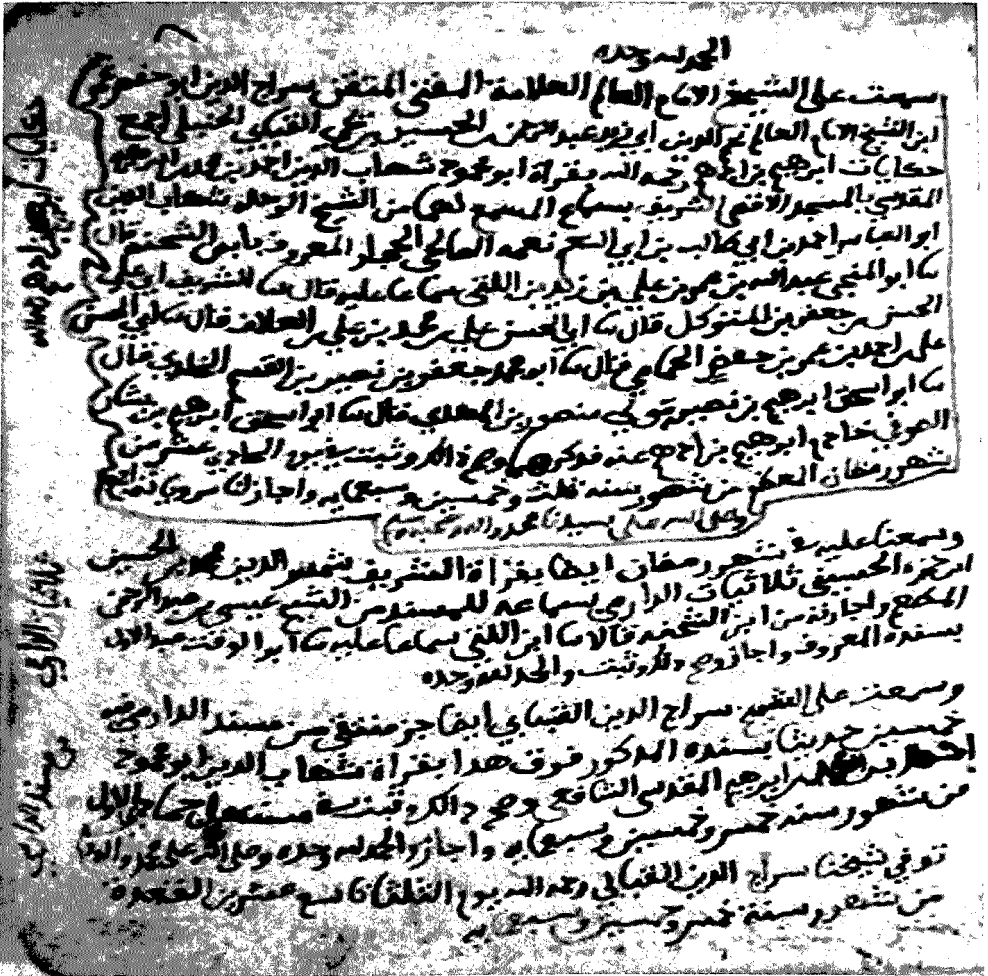 الحمد لله وحده
سمعت على الشيخ الامام العالم العلامة المفتي المتقن سراج الدين ابو حفص عمر
ابن الشيخ الامام العالم نجم الدين عبد الرحمن الحسين بن يحيى القبابي الحنبلي جميع
حكايات ابرهيم بن ادهم رحمه الله بقراة ابو محمود شهاب الدين احمد بن محمد بن ابرهيم
المقدسي بالمسجد الاقصى الشريف بسماع المسمع لها من الشيخ الرحلة شهاب الدين
ابو العباس احمد بن ابي طالب بن ابي النعم نعمه الصالحي الحجار المعروف بابن الشحنه قال
نا ابو المنجى عبد الله بن عمر بن علي بن زيد بن اللتي سماعا عليه قال نا الشريف ابو علي
الحسن بن جعفر بن المتوكل قال نا ابي الحسن علي بن محمد بن علي بن العلاف قال نا ابي الحسن
علي بن احمد بن عمر بن حفص الحمامي قال نا ابو محمد جعفر بن نصير بن القسم الخلدي قال
نا ابو اسحق ابرهيم بن نصير مولى منصور بن المهدي قال نا ابو اسحق ابرهيم بن بشار
الصوفي خادم ابرهيم بن ادهم عنه فذكرهم وصح ذلك وثبت في يوم الحادي عشر من
شهر رمضان المعظم من شهور سنه ثلث وخمسين وسبع مايه واجازنا مروياته اجمع
وصلى الله على سيدنا محمد واله وصحبه وسلم
وسمعنا عليه في شهر رمضان ايضا بقراة الشريف شمس الدين محمد بن الحسين
ابن حمزه الحسيني ثلاثيات الدارمي بسماعه للمسند من الشيخ عيسى بن عبد الرحمن
المطعم واجازته من ابن الشحنه قالا نا ابن اللتي سماعا عليه نا ابو الوقت عبد الاول
بسنده المعروف واجاز وصح ذلك وثبت والحمد لله وحده
وسمعت على الشيخ سراج الدين القبابي ايضا جز منتقى من مسند الدارمي فيه
خمسين حديثا بسنده المذكور فوق هذا بقراة شهاب الدين ابو محمود
احمد بن محمد بن ابرهيم المقدسي الشافعي وصح ذلك وثبت في جمادى الاول
من شهور سنه خمس وخمسين وسبع مايه واجاز والحمد لله وحده وصلى الله على محمد واله
توفي شيخنا سراج الدين القبابي رحمه الله يوم الثلاثا تاسع عشرين القعدة
من شهور سنة خمس وخمسين وسبع مايه
حكايات ابرهيم بن ادهم
ثلاثيات الدارمي
من مسند الدارمي